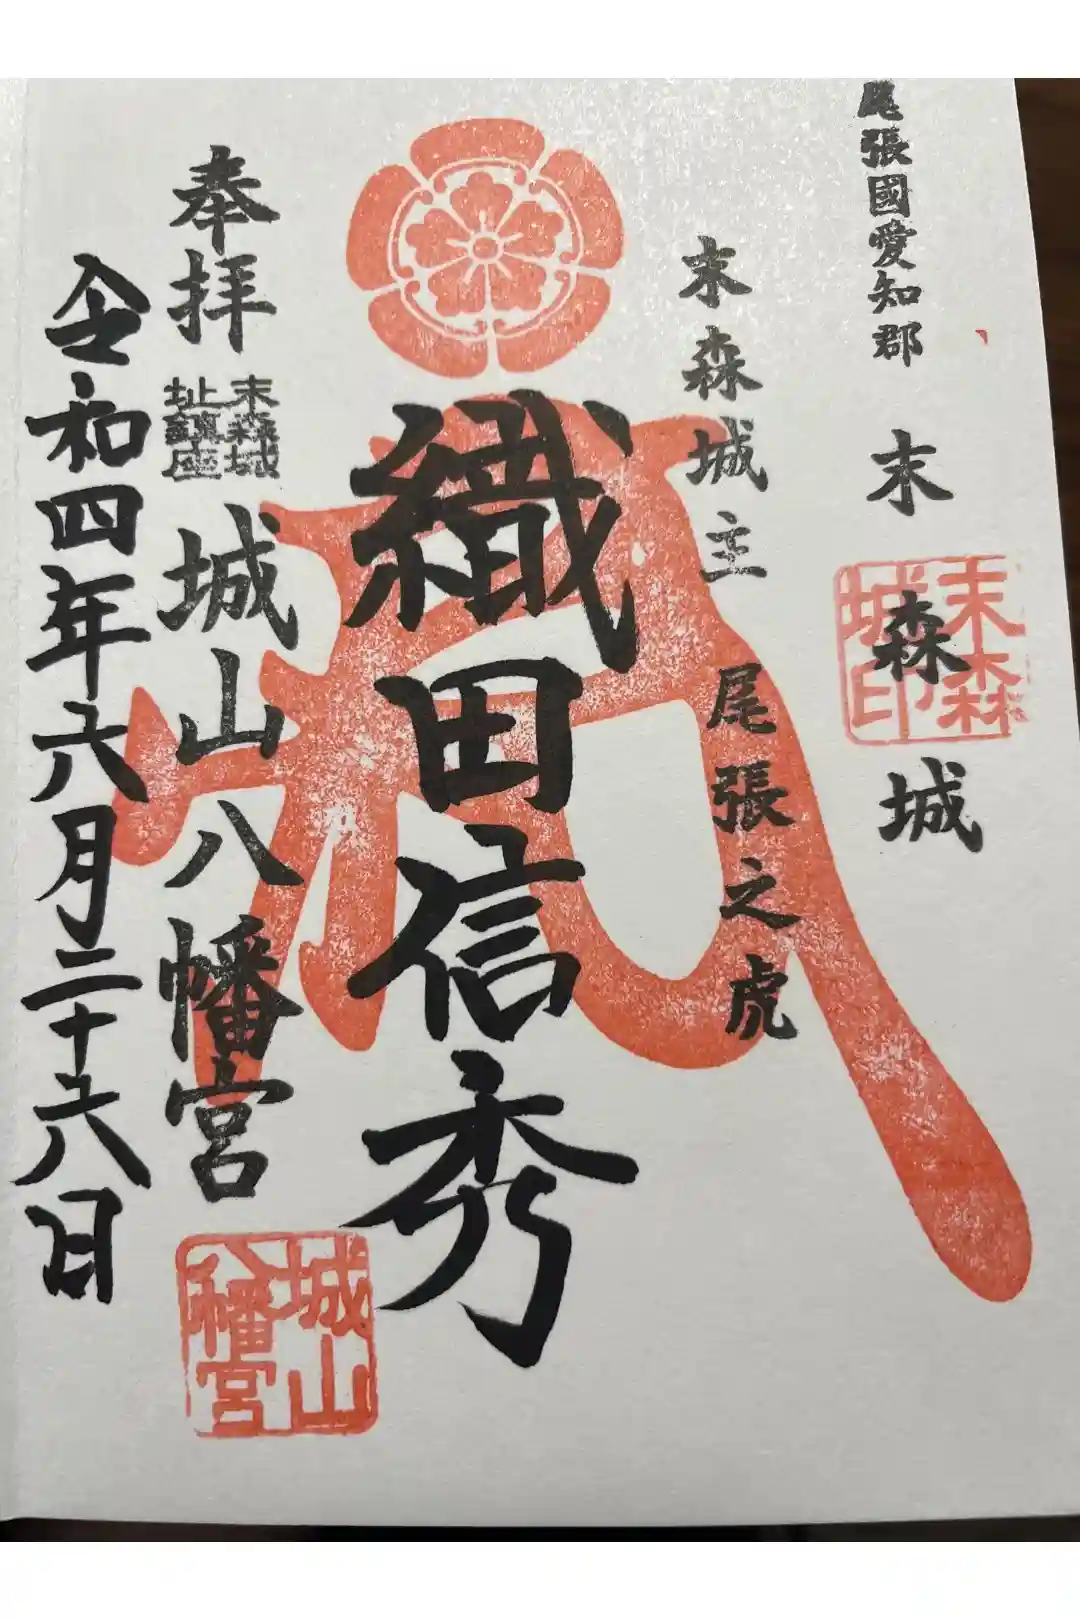 尾張國愛知郡
末森城
末森城印
末森城主 尾張之虎
織田信秀
奉拝
末森城
址鎮座
城山八幡宮
城山
八幡宮
令和四年六月二十六日